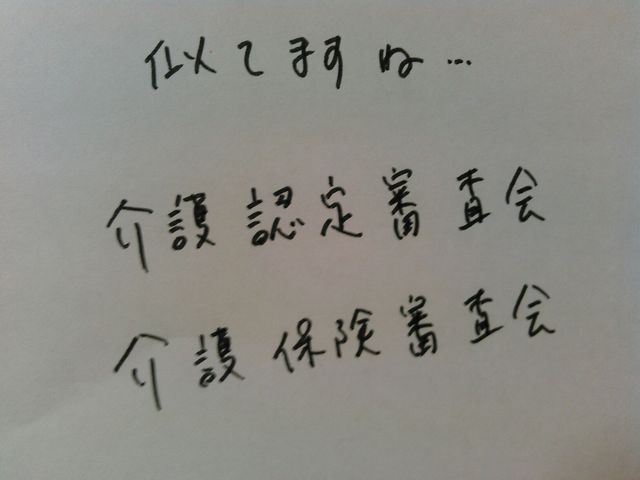 似てますね…
介護認定審査会
介護保険審査会